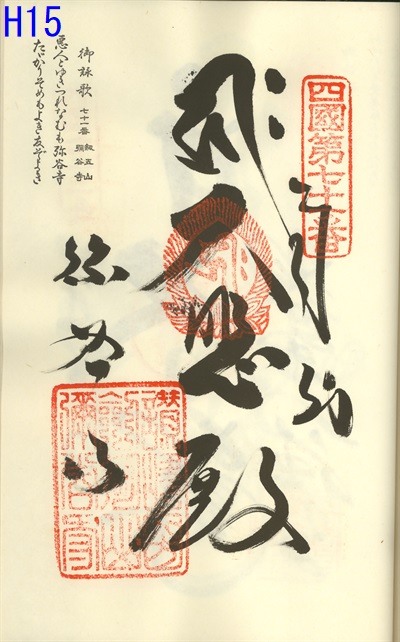 H15
四國第七十一番
奉納
大悲殿
弥谷寺
御詠歌 七十一番 剣五山 弥谷寺
悪人とゆきつれなむも弥谷寺
たゞかりそめもよき友ぞよき